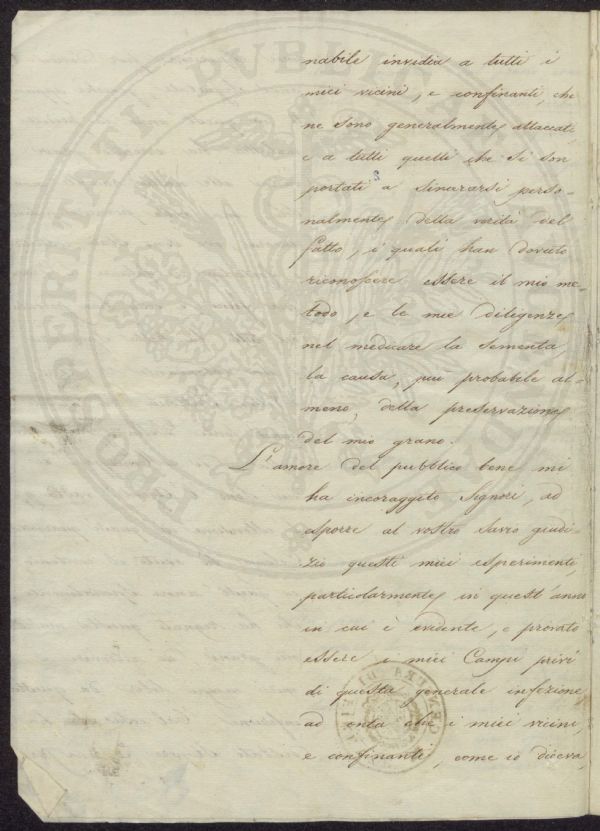 nabile invidia a tutti i
miei vicini, e confinanti, che
ne sono generalmente attaccati,
e a tutti quelli che si son
portati a sincerarsi perso-
nalmente della verità del
fatto, i quali han dovuto
riconoscere essere il mio me-
todo, e le mie diligenze
nel medicare la sementa
la causa, più probabile al-
meno, della preservazione
del mio grano.
L'amore del pubblico bene mi
ha incoraggito Signori, ad
esporre al vostro savio giudi-
zio questi miei esperimenti,
particolarmente in quest'anno
in cui è evidente, e provato
essere i miei Campi privi
di questa generale infezione
ad onta che i miei vicini,
e confinanti, come io diceva,
PROSPERITATI PUBLICAE